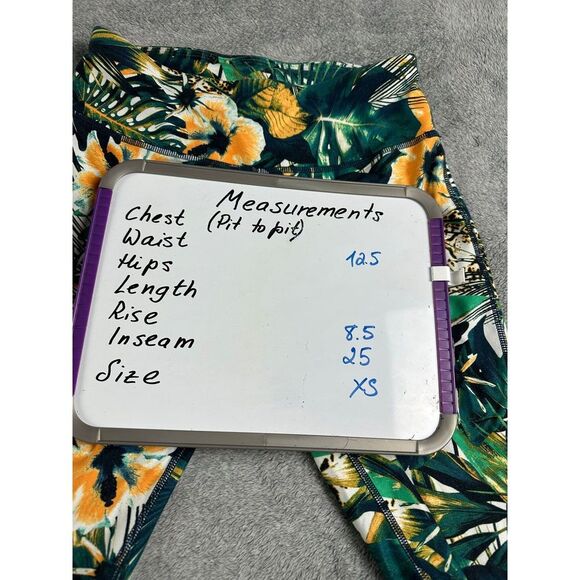 Measurements
Chest (Pit to pit)
Waist
Hips 12.5
Length
Rise 8.5
Inseam 25
Size XS